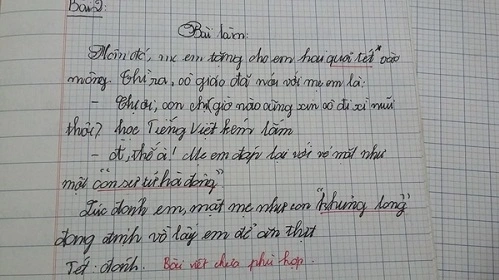 Bài 2:
Bài làm
Hôm đó, mẹ em tặng cho em hai quả tét vào
mông. Thì ra, cô giáo đã nói với mẹ em là:
- Chị ơi, con chị giờ nào cũng xin cô đi xì mũi
thôi? học Tiếng Việt kém lắm
- Ồ, thế ơi! Mẹ em đáp lại với vẻ mặt như
một "con sư tử hà đông"
Lúc đánh em, mặt mẹ như con "khủng long"
đang định vồ lấy em để ăn thịt
Tét: đánh. Bài viết chưa phù hợp.